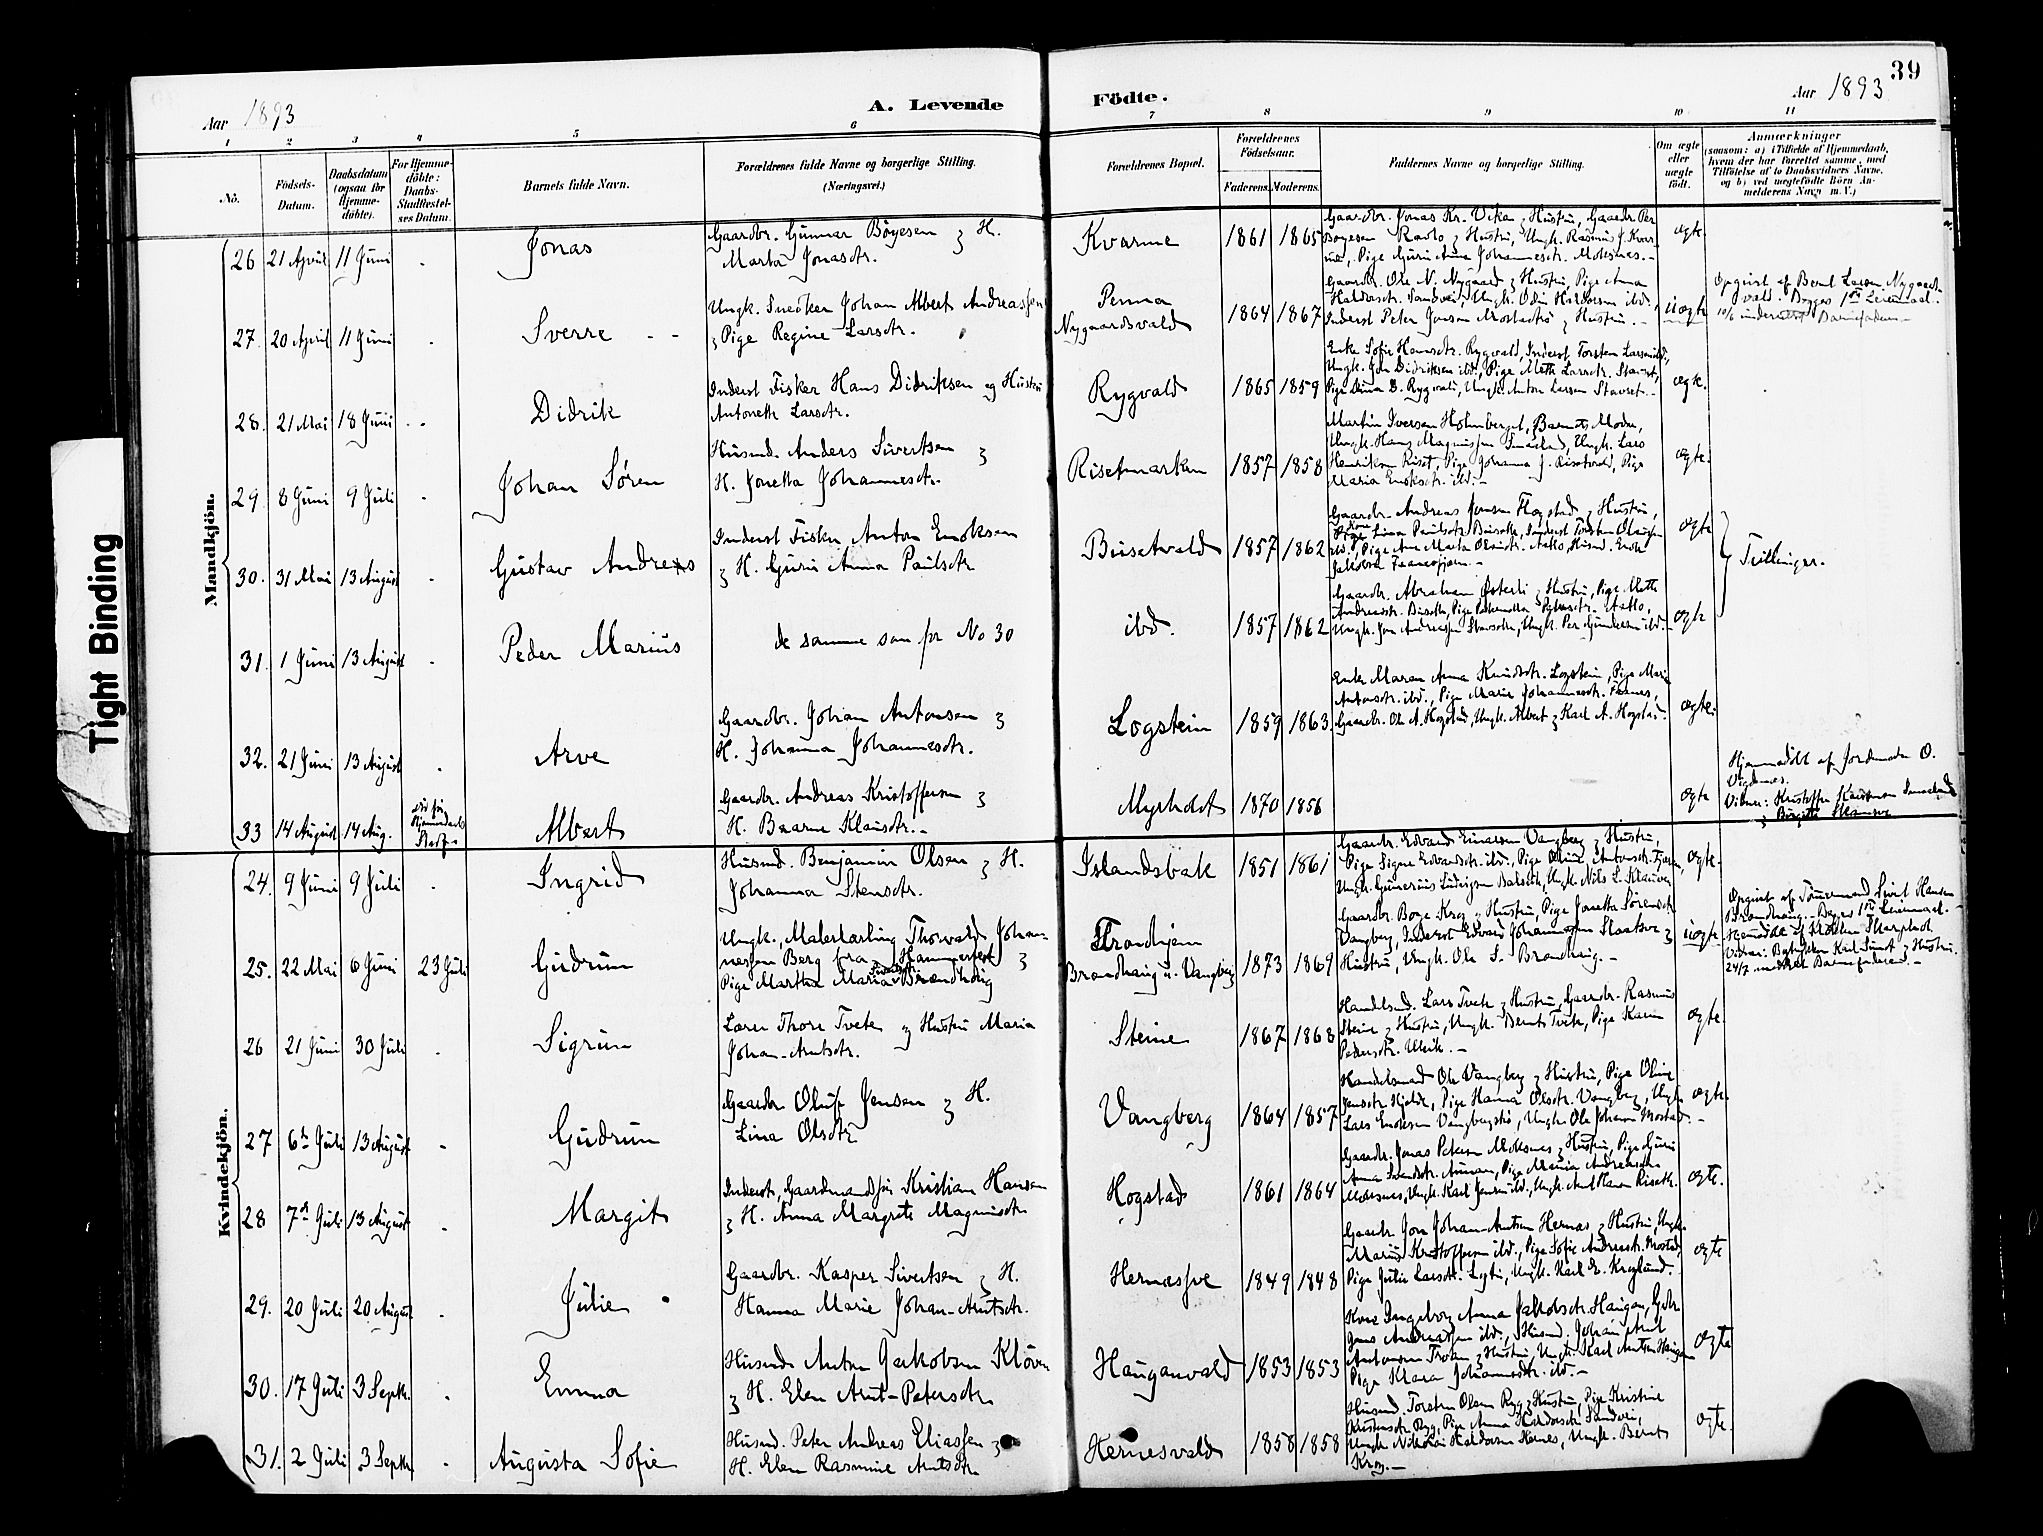 39
Aar 1893
A. Levende
Födte.
Aar 1893
1 2 3 4 5 6 7 8 9 10 11
No.
Födsels-
Datum.
Daabsdatum
(ogsaa for
Hjemme-
döbte).
For Hjemme-
döbte:
Daabs-
Stadfæstel-
ses Datum.
Barnets fulde Navn.
Forældrenes fulde Navne og borgerlige Stilling.
(Næringsvei.)
Forældrenes Bopæl.
Forældrenes
Födselsaar.
Faderens. Moderens.
Faddernes Navne og borgerlige Stilling.
Om ægte
eller
uægte
födt.
Anmærkninger
(saasom: a) i Tilfælde af Hjemmedaab,
hvem der har forrettet samme, med
Tilföielse af to Daabsvidners Navne,
og b) ved uægtefödte Börn An-
melderens Navn m. V.)
Mandkjön.
26 21 April 11 Juni - Jonas
Gaardbr. Gunnar Böyesen & H.
Marta Jonasdtr.
Kvarme 1861 1865
Gaardbr. Jonas Kr. Vikan & Hustru, Gaardbr. Per
Böyesen & Hustru, Ungk. Rasmus J. Kvar-
me, Pige Guru Anna Johannesdtr. Moksnes.-
ægte
27. 20 April 11 Juni - Sverre
Ungk. Snedker Johan Albert Andreassen
& Pige Regine Larsdtr.
Penna
Nygaardsvald
1864 1867
Gaardbr. Ole N. Nygaard & Hustru, Pige Anna
Haldorsdtr. Sandvei, Ungk. Odin Haldorsen ibd.,
Inderst Peter Jonsen & Hustru.-
uægte
Opgivet af Bernt Larsen Nygaards-
vald. Begges 1ste Leiermaal.
28. 21 Mai 18 Juni - Didrik
Inderst Fisker Hans Didriksen og Hustru
Antonette Larsdtr.
Rygvald 1865 1859
Enke Sofie Hansdtr. Rygvald, Inderst Torsten Larsen ibd.,
Ungk. Jon Didriksen ibd., Pige Meth Larsdtr. Stavset,
Pige Dina D. Rygvald, Ungk. Anton Larsen Stavset.-
ægte
29. 8 Juni 9 Juli - Johan Sören
Husmd. Anders Sivertsen &
H. Jonetta Johannesdtr.
Risetmarken 1857 1858
Martin Iversen Holmberget, Barnets Moder,
Ungk. Hans Magnussen, Ungk. Lars
Henriksen Riset, Pige Johanna J. Risetvald, Pige
Maria Enoksdtr. ibd.-
ægte.
30. 31 Mai 13 August - Gustav Andreas
Inderst Fisker Anton Enoksen
& H. Guru Anna Paulsdtr.
Busetvald 1857 1862
Gaardbr. Andreas Jensen Hogstad & Hustru,
Kone Lina Paulsdtr. Busetv., Inderst Torsten Olausen
ibd., Pige Ane Marta
ægte
Tvillinger.
31. 1 Juni 13 August - Peder Marius
de samme som for No 30
ibd. 1857 1862
Gaardbr. Abraham Österli & Hustru, Pige Meth
Andreasdtr.
Ungk. Jon Andreassen, Ungk. Per Gundersen ibd.-
ægte
32. 21 Juni 13 August - Arve
Gaardbr. Johan Antonsen &
H. Johanna Johannesdtr.
Logstein 1859 1863.
Enke Maren Anna Knudsdtr. Logstein, Pige Maria
Antonsdtr. ibd., Pige Marie Johannesdtr.
Gaardbr. Ole A. Hogstad, Ungk. Albert & Karl A. Hogstad.
ægte.
33 14 August 14 Aug.
Albert
Gaardbr. Andreas Kristoffersen &
H. Beanne Klausdtr.-
Myrholdt 1870 1856
ægte
Hjemmedöbt af Jordemoder O.
Vigdnes.
Kvindekjön.
24. 9 Juni 9 Juli - Ingrid
Husmd. Benjamin Olsen & H.
Johanna Stensdtr.
Islandsbak 1851 1861
Gaardbr. Edvard Einarsen Vangberg & Hustru,
Pige Signe Edvardsdtr. ibd., Pige Oline Antonsdtr.
Ungk. Gunerius Ludvigsen, Ungk. Nils L.
ægte.
25. 22 Mai 6 Juni 23 Juli Gudrun
Ungk., Malerlærling Thorvald Johan-
nesen Berg fra Hammerfest &
Pige Martha Maria Brandhaug
Trondhjem
Brandhaug u. Vangberg
1873 1869
Gaardbr. Boye Krog & Hustru, Pige Jonetta Sörensdtr.
Vangberg, Inderst Edvard Johannesen &
Hustru, Ungk. Ole S. Brandhaug.-
uægte
26 21 Juni 30 Juli - Sigrun
Lærer Thore Tvete & Hustru Maria
Johan-Arntsdtr.
Steine 1867 1868
Handelsmd. Lars Tvete & Hustru, Gaardbr. Rasmus
Steine & Hustru, Ungk. Bernt Tvete, Pige Karen
Pedersdtr. Ulvik.-
ægte.
27 6te Juli 13 August - Gudrun
Gaardbr. Oluf Jensen & H.
Lina Olsdtr.
Vangberg 1864 1857
Handelsmand Ole Vangberg & Hustru, Pige Oline
Jensdtr. Hjelde, Pige Hanna Olsdtr. Vangberg, Ungk.
Lars Enoksen Vangbergströ, Ungk. Ole Johansen Mostad.-
ægte.
28 7de Juli 13 August - Margit
Inderst, Gaardmandssön Kristian Hansen
& H. Anna Margrete Magnusdtr.
Hogstad 1861 1864
Gaardbr. Jonas Petersen Moksnes & Hustru, Pige Guru
Anna Svendsdtr. Aunan, Pige Maria Andreasdtr.
Moksnes, Ungk. Karl Jensen ibd., Ungk.
ægte.
29. 20 Juli 20 August - Julie
Gaardbr. Kasper Sivertsen & H.
Hanna Marie Johan-Arntsdtr.
Hernesöre 1849 1848
Gaardbr. Jon Johan-Arntsen Hernes & Hustru, Ungk.
Marius Kristoffersen ibd., Pige Sofie Andreasdtr. Mostad,
Pige Julie Larsdtr., Ungk. Karl E. Kroglund.
ægte
30. 17 Juli 3 Septbr. - Emma
Husmd. Anton Jakobsen Klöven
& H. Elen Arnt-Petersdtr.
Hauganvald 1853 1853
Kone Ingeborg Anna Jakobsdtr. Haugan, Gbr.
Jens Andreassen ibd., Husmd. Johan Arnt
Antonsen Troan & Hustru, Ungk. Karl Antonsen Haugan
Pige Klara Johannesdtr. ibd.-
ægte
31. 2 Juli 3 Septbr. - Augusta Sofie
Husmd. Peter Andreas Eliassen &
H. Elen Rasmine Arntsdtr.
Hernesvald 1858 1858
Husmd. Torsten Olsen Ryg & Hustru, Pige Kristine
Kristensdtr. Ryg, Pige Anna Haldorsdtr. Sandvei,
Ungk. Nikolai Haldorsen Hernes, Ungk. Bernt
Krog.-
ægte
Tight Binding